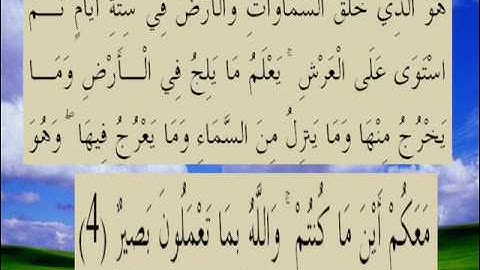 هُوَ الَّذِي خَلَقَ السَّمَاوَاتِ وَالْأَرْضَ فِي سِتَّةِ أَيَّامٍ ثُمَّ
اسْتَوَى عَلَى الْعَرْشِ ۚ يَعْلَمُ مَا يَلِجُ فِي الْأَرْضِ وَمَا
يَخْرُجُ مِنْهَا وَمَا يَنزِلُ مِنَ السَّمَاءِ وَمَا يَعْرُجُ فِيهَا ۖ وَهُوَ
مَعَكُمْ أَيْنَ مَا كُنتُمْ ۚ وَاللَّهُ بِمَا تَعْمَلُونَ بَصِيرٌ (4)